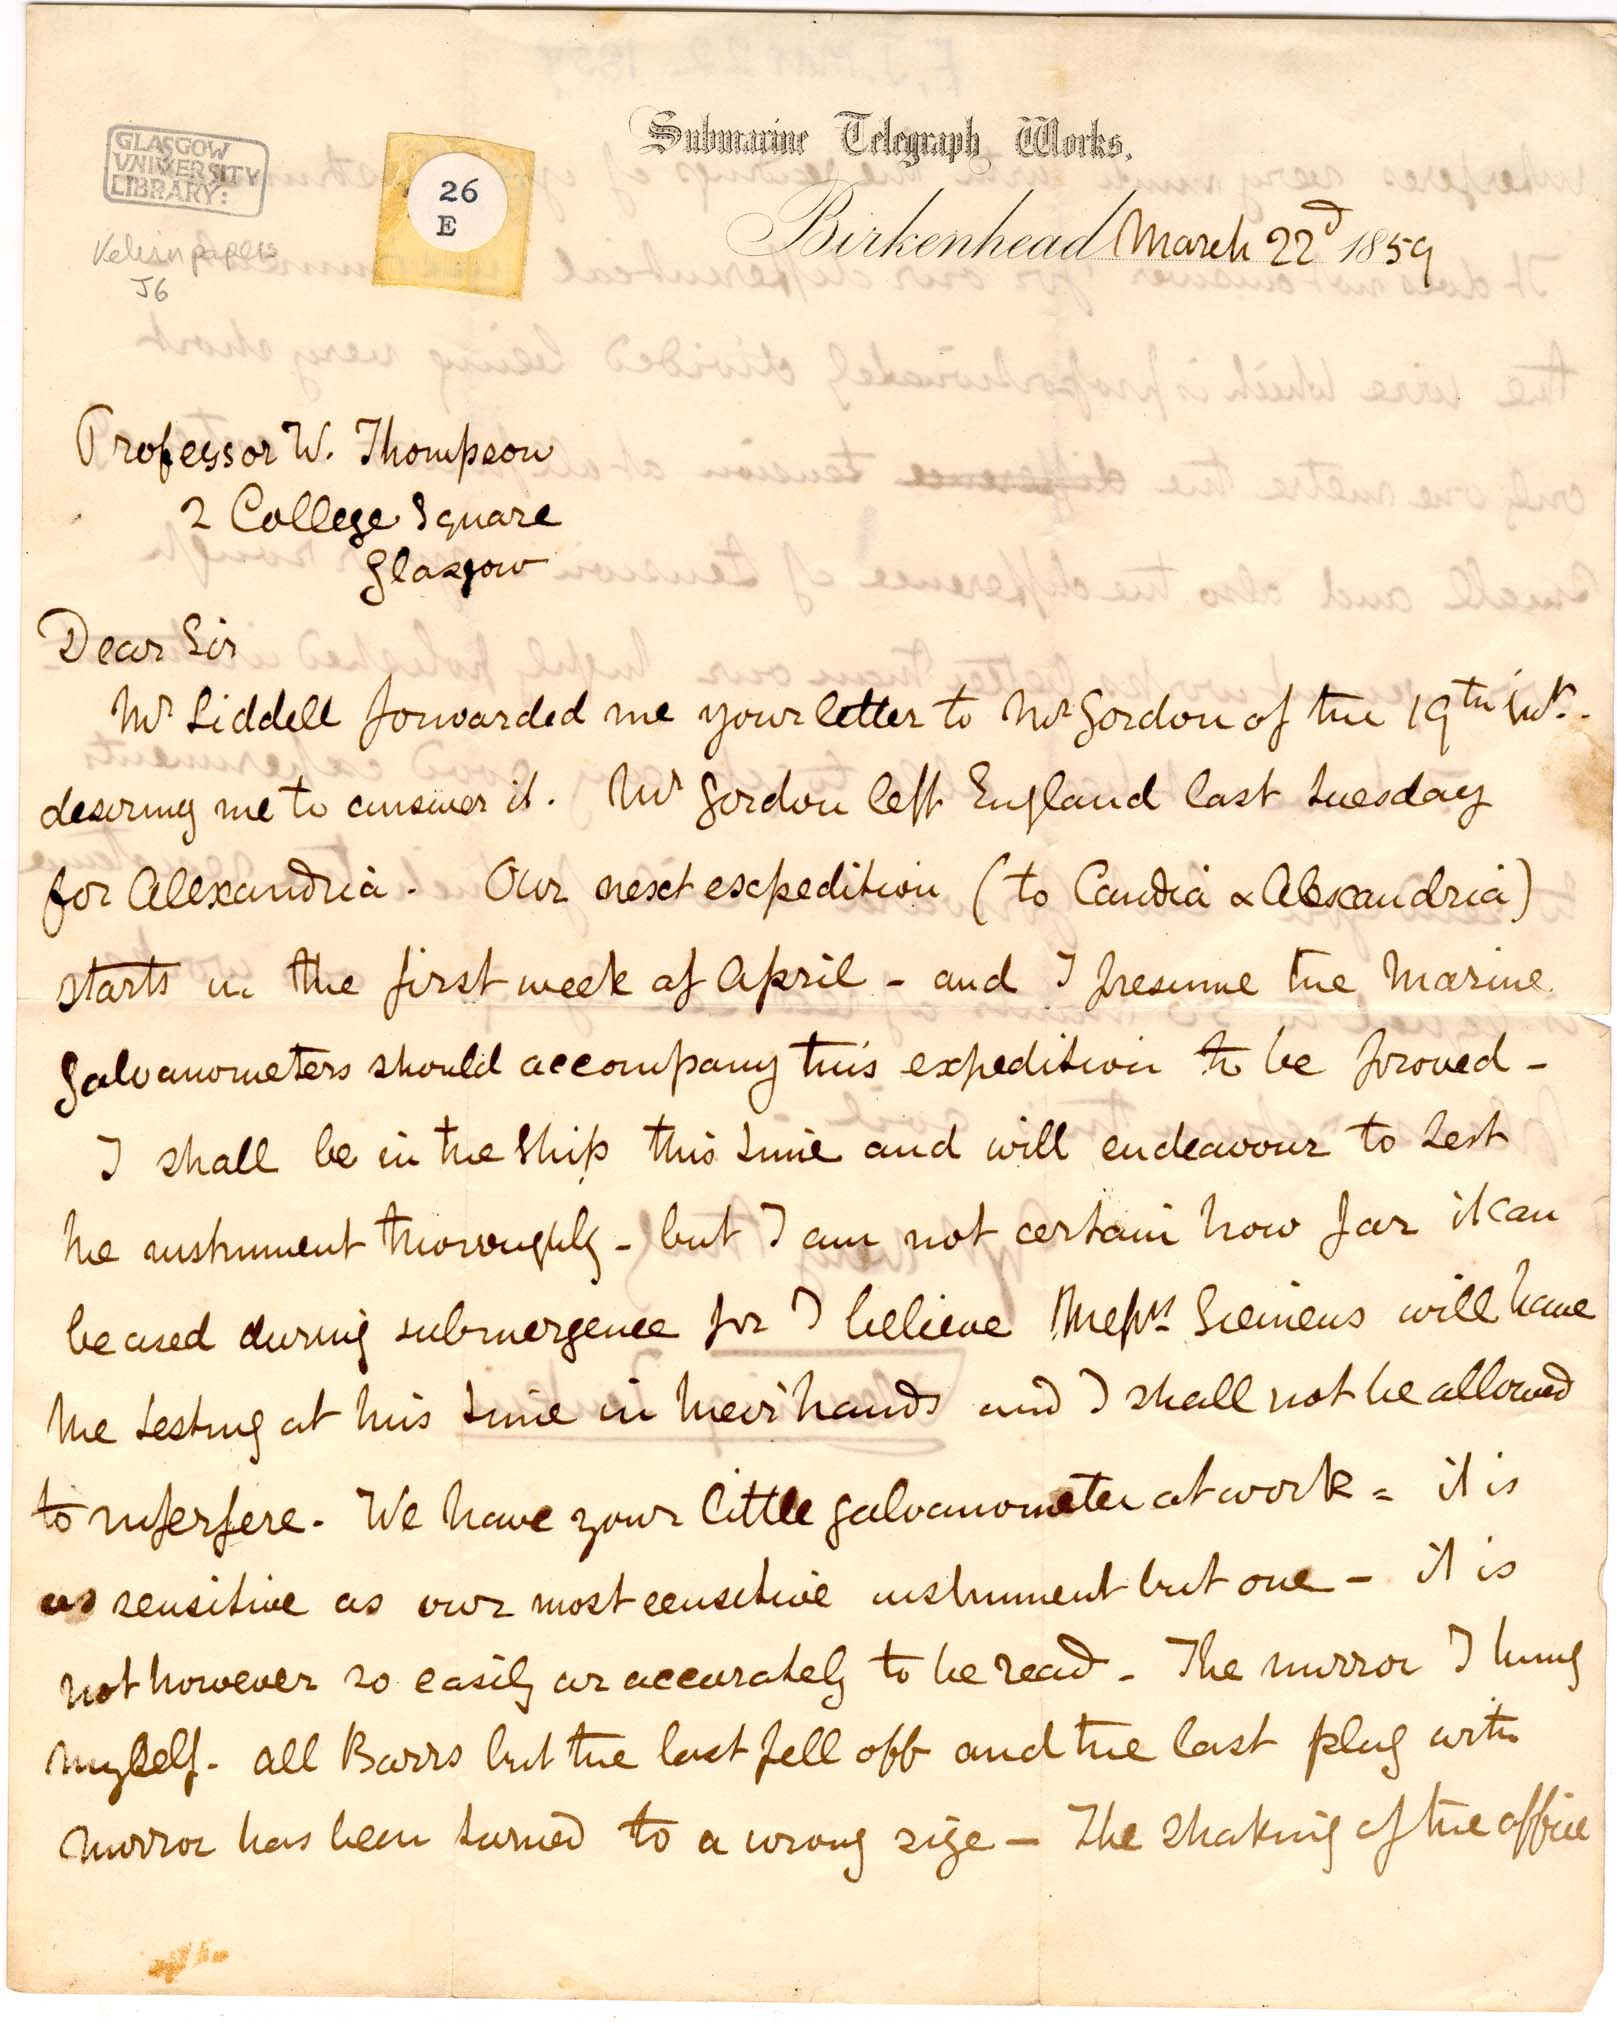 Submarine Telegraph Works.
GLASGOW
UNIVERSITY
LIBRARY:
26
E
Kelvin papers
J6
Birkenhead March 22d 1859
Professor W. Thompson
2 College Square
Glasgow
Dear Sir
Mr Liddell forwarded me your letter to Mr Gordon of the 19th inst.
desiring me to answer it. Mr Gordon left England last Tuesday
for Alexandria. Our next expedition (to Candia & Alexandria)
starts in the first week of April - and I presume the Marine
Galvanometers should accompany this expedition to be proved -
I shall be in the ship this time and will endeavour to test
the instrument thoroughly - but I am not certain how far it can
be used during submergence for I believe Messrs Siemens will have
the testing at this time in their hands and I shall not be allowed
to interfere. We have your little galvanometer at work = it is
as sensitive as our most sensitive instrument but one - it is
not however so easily or accurately to be read - The mirror I hung
myself. all Barrs but the last fell off and the last plug with
mirror has been turned to a wrong size - The shaking of the office